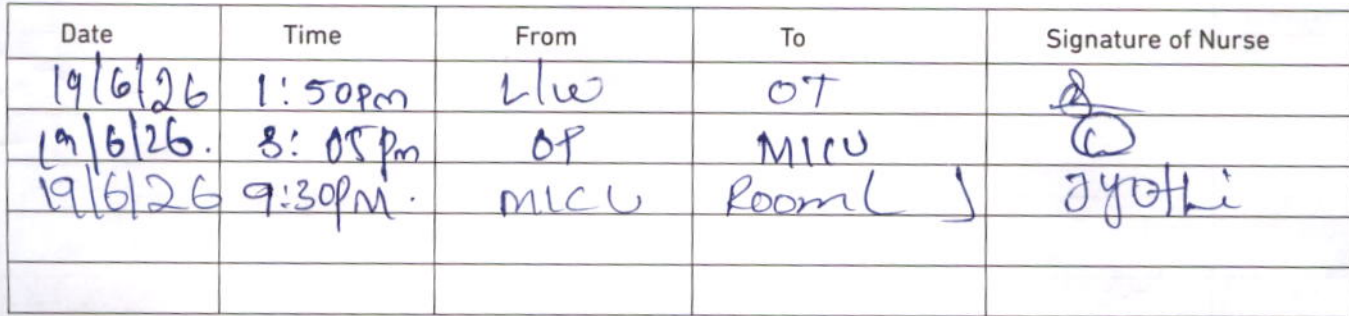 Date Time From To Signature of Nurse
19/6/26 1:50pm L/W OT
19/6/26. 3:05pm OT MICU
19/6/26 9:30PM. MICU Room ( ) Jyothi